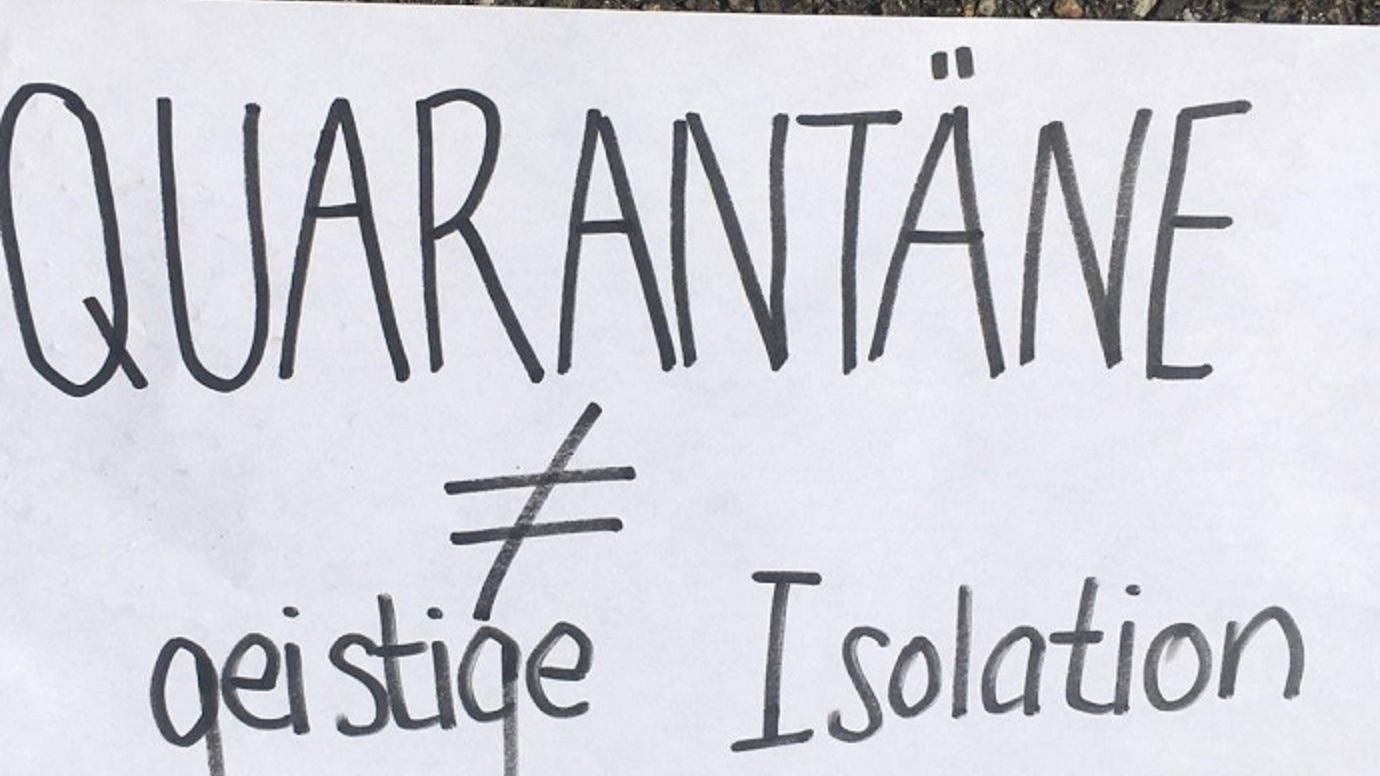 QUARANTÄNE
≠
geistige Isolation